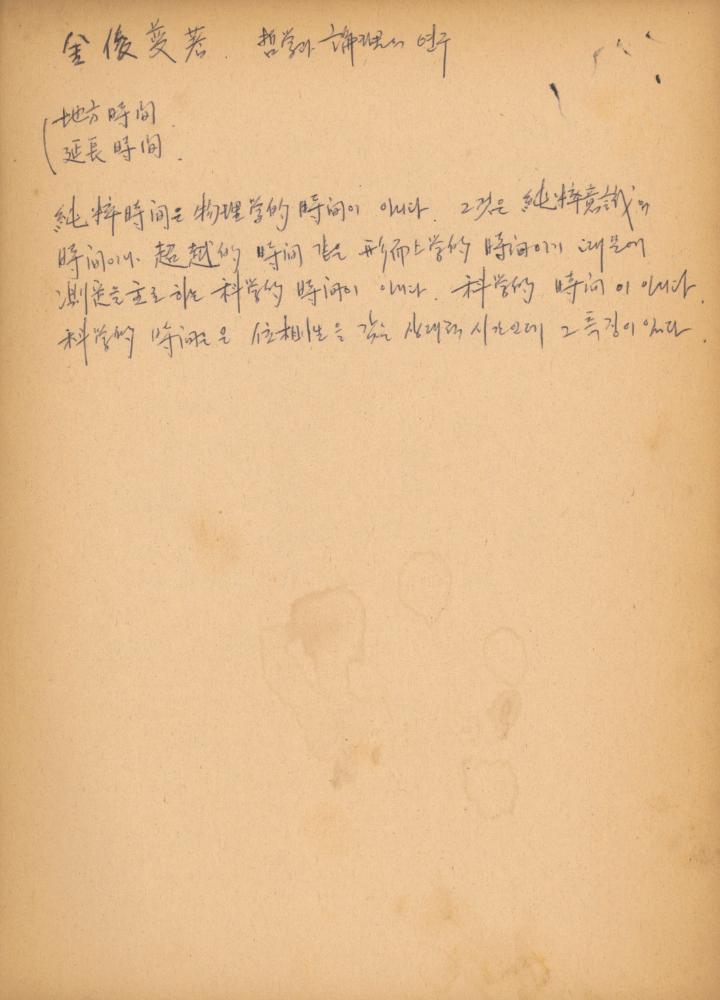 金俊燮著. 哲学과 論理의 연구
地方時間.
延長時間.
純粹時間은 物理学的 時間이 아니다. 그것은 純粹意識의
時間이나 超越的 時間 같은 形而上学的 時間이기 때문에
測定을 主로 하는 科学的 時間이 아니다. 科学的 時間이 아니다.
科学的 時間은 位相性을 갖는 상대적 시간인데 그 특징이 있다.